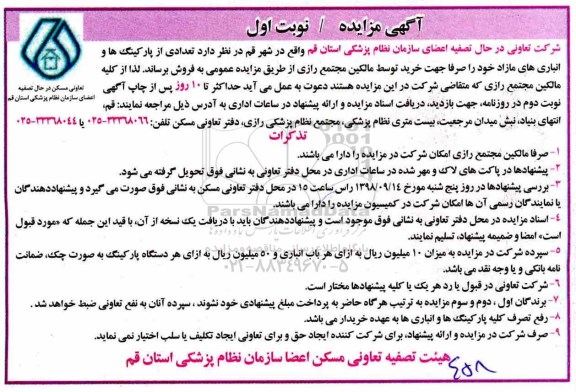 آگهی مزایده / نوبت اول
شرکت تعاونی در حال تصفیه اعضای سازمان نظام پزشکی استان قم واقع در شهر قم در نظر دارد تعدادی از پارکینگ ها و
انباری های مازاد خود را صرفا جهت خرید توسط مالکین مجتمع رازی از طریق مزایده عمومی به فروش برساند. لذا از کلیه
مالکین مجتمع رازی که متقاضی شرکت در این مزایده هستند دعوت به عمل می آید حداکثر تا ۱۰ روز پس از چاپ آگهی
نوبت دوم در روزنامه، جهت بازدید، دریافت اسناد مزایده و ارائه پیشنهاد در ساعات اداری به آدرس ذیل مراجعه نمایند: قم،
انتهای بنیاد، نبش میدان مرجعیت، بیست متری نظام پزشکی، مجتمع نظام پزشکی رازی، دفتر تعاونی مسکن تلفن: ۳۳۳۶۸۰۶۶-۰۲۵ یا ۳۳۳۶۸۰۴۴-۰۲۵
تعاونی مسکن در حال تصفیه
اعضای سازمان نظام پزشکی استان قم
تذکرات
۱- صرفا مالکین مجتمع رازی امکان شرکت در مزایده را دارا می باشند.
۲- پیشنهادها در پاکت های لاک و مهر شده در ساعات اداری در محل دفتر تعاونی به نشانی فوق تحویل گرفته می شود.
۳- بررسی پیشنهادها در روز پنج شنبه مورخ ۱۳۹۸/۰۹/۱۴ راس ساعت ۱۵ در محل دفتر تعاونی مسکن به نشانی فوق صورت می گیرد و پیشنهاددهندگان
یا نمایندگان رسمی آن ها امکان شرکت در کمیسیون مزایده را دارا می باشند.
ParsNamadData
۴- اسناد مزایده در محل دفتر تعاونی به نشانی فوق موجود است و پیشنهاددهندگان باید با دریافت یک نسخه از آن، با قید این جمله که «مورد قبول
است» امضا و ضمیمه پیشنهاد، تسلیم نمایند.
۵- سپرده شرکت در مزایده به میزان ۱۰ میلیون ریال به ازای هر باب انباری و ۵۰ میلیون ریال به ازای هر دستگاه پارکینگ به صورت چک، ضمانت
نامه بانکی و یا وجه نقد می باشد.
۰۲۱-۸۸۳۴۹۶۷۰-۵
۶- شرکت تعاونی در قبول یا رد هر یک یا کلیه پیشنهادها مختار است.
۷- برندگان اول، دوم و سوم مزایده به ترتیب هرگاه حاضر به پرداخت مبلغ پیشنهادی خود نشوند، سپرده آنان به نفع تعاونی ضبط خواهد شد.
۸- رفع تصرف کلیه پارکینگ ها و انباری ها به عهده خریدار می باشد.
۹- صرف شرکت در مزایده و ارائه پیشنهاد، برای شرکت کننده ایجاد حق و برای تعاونی ایجاد تکلیف یا سلب اختیار نمی نماید.
هیئت تصفیه تعاونی مسکن اعضا سازمان نظام پزشکی استان قم